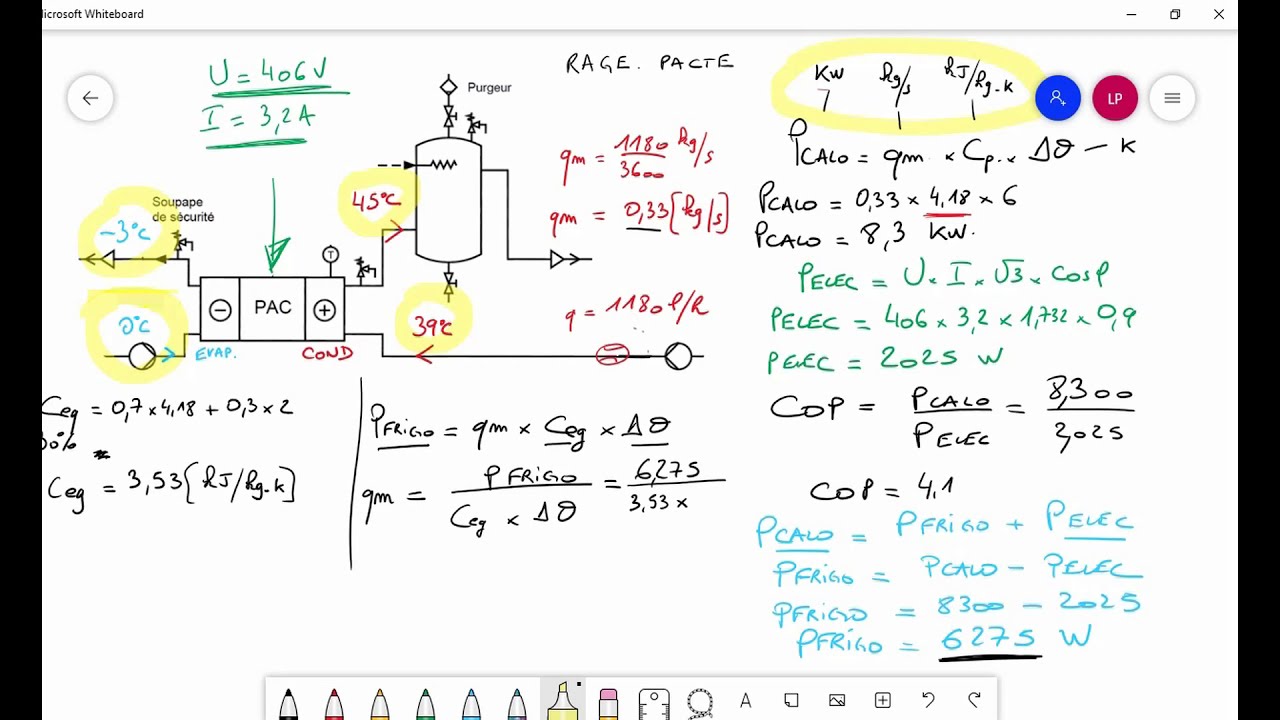 icrosoft Whiteboard
U = 406V
I = 3,2A
Purgeur
RAGE. PACTE
Soupape
de sécurité
-3°C
0°C
45°C
39°C
T
PAC
EVAP.
COND
qm = 1180 kg/s
3600
qm = 0,33 [kg/s]
q = 1180 l/h
KW kg/s kJ/kg-K
LP
PCALO = qm × Cp × Δθ - K
PCALO = 0,33 × 4,18 × 6
PCALO = 8,3 KW.
PELEC = U × I × √3 × cosφ
PELEC = 406 × 3,2 × 1,732 × 0,9
PELEC = 2025 W
COP = PCALO = 8,300
PELEC 2,025
COP = 4,1
PCALO = PFRIGO + PELEC
PFRIGO = PCALO - PELEC
PFRIGO = 8300 - 2025
PFRIGO = 6275 W
Ceg = 0,7 × 4,18 + 0,3 × 2
30%
Ceg = 3,53 [kJ/kg-K]
PFRIGO = qm × Ceg × Δθ
qm = PFRIGO = 6,275
Ceg × Δθ 3,53 ×
A